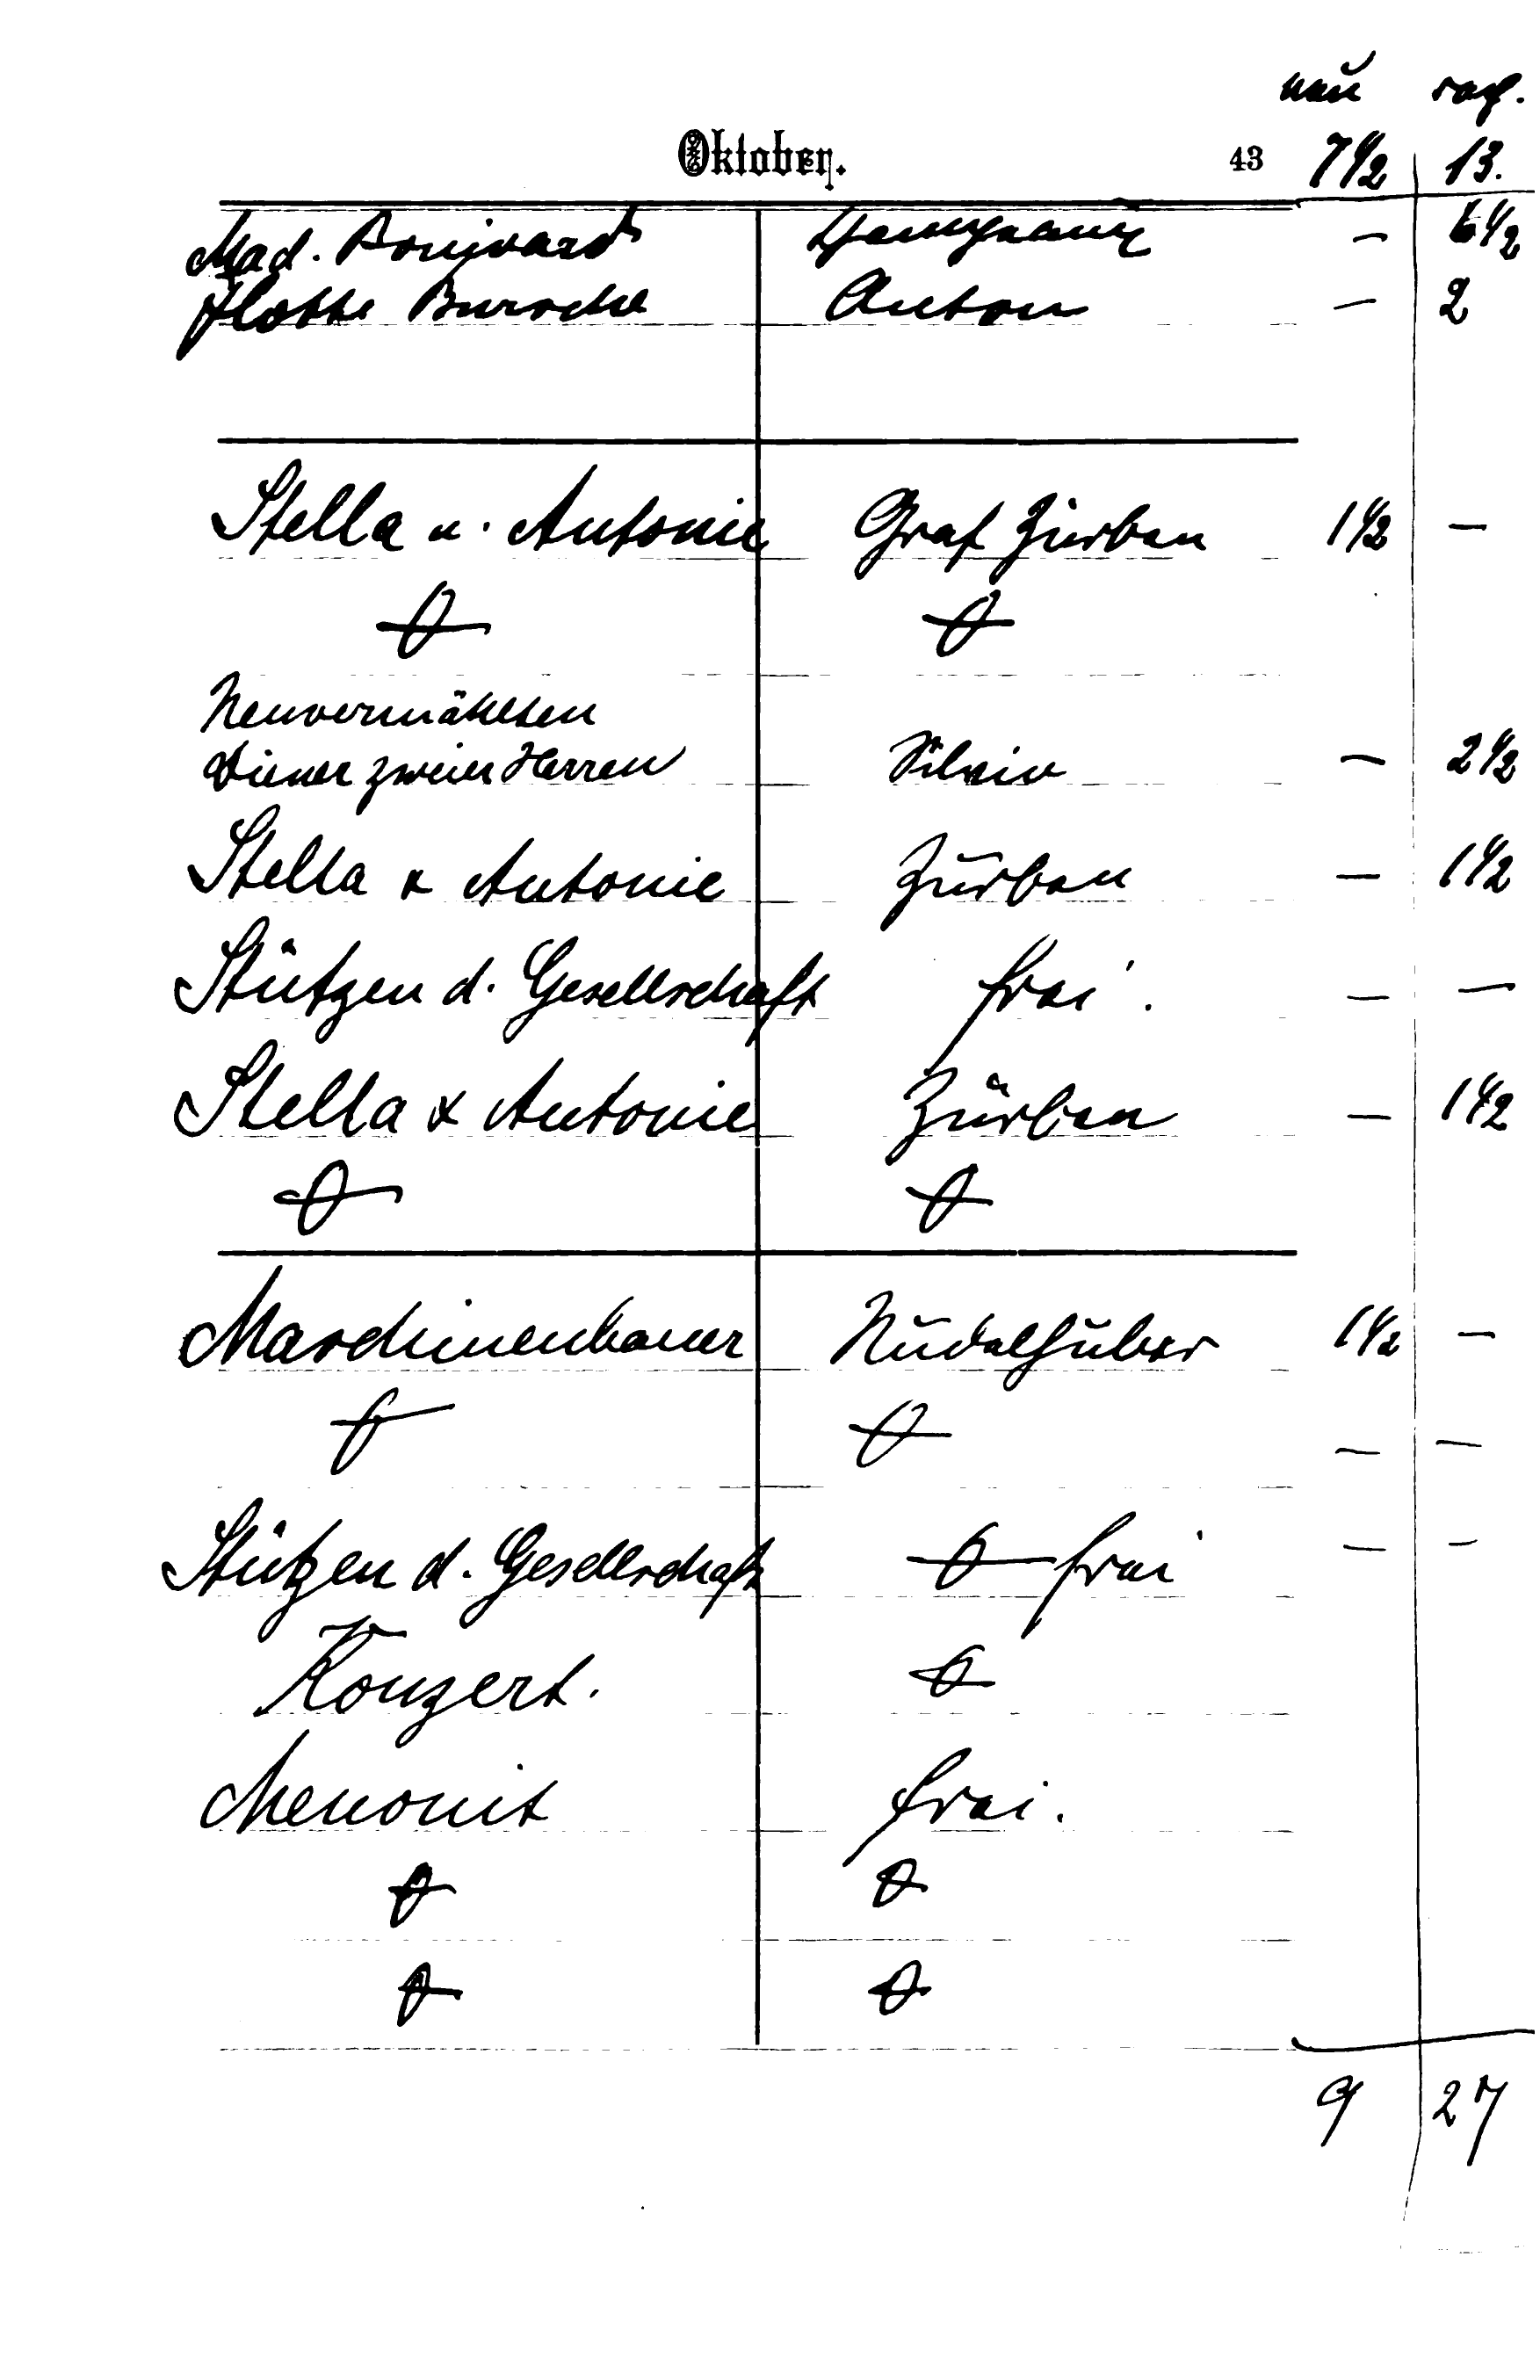 neu rep.
Oktober. 43 7 1/2 13.
Mad. Bonivard – 6 1/2
Flotte Bursche Anton – 2
Stella u. Antonie Graf Zürben 1 1/2 –
Neuvermählten
Diener zweier Herren Silvio – 2 1/2
Stella & Antonie Zürben – 1 1/2
Stützen d. Gesellschaft frei. – –
Stella & Antonie Zürben – 1 1/2
Maschinenbauer Nudelhuber 1 1/2 –
– –
Stützen d. Gesellschaft frei – –
Konzert.
Menonit frei.
9 27